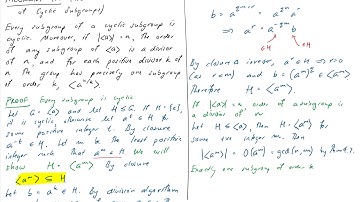 of Cyclic Subgroups)
Every subgroup of a cyclic subgroup is
cyclic. Moreover, if |<a>| = n, the order
of any subgroup of <a> is a divisor
of n, and for each positive divisor k of
n the group has precisely one subgroup
of order k, <a^{n/k}>.
PROOF Every subgroup is cyclic
Let G = <a> and let H ≤ G. If H = {e},
H is cyclic. Otherwise let a^t ∈ H for
some positive integer t. By closure
a^{-t} ∈ H. Let m be the least positive
integer such that a^m ∈ H. We will
show H = <a^m>. By closure
<a^m> ⊆ H
Let b = a^k ∈ H. By division algorithm
b = a^{qm+r} = a^{qm} a^r
⇒ a^r = a^{-qm} b
∈H ∈H
By closure & inverse, a^r ∈ H ⇒ r=0
(as r<m) and b = (a^m)^q ∈ <a^m>
Therefore H = <a^m>.
If |<a>| = n, order of a subgroup is
a divisor of n
Let H ≤ <a>, Then H = <a^m> for
some +ve integer m. Then
|<a^m>| = O(a^m) =
Exactly one subgroup of order k